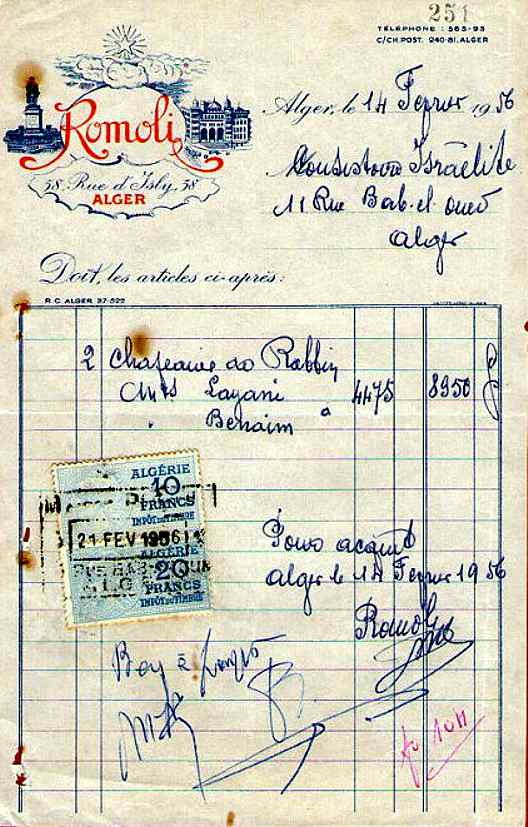 251
TÉLÉPHONE : 563-93
C/CH. POST. 240-81. ALGER
Romoli
38. Rue d'Isly. 38
ALGER
Alger, le 14 Fevrier 1956
Consistoire Israëlite
11 Rue Bab-el-oued
Alger
Doit, les articles ci-après :
R.C. ALGER 37-522
2 Chapeaux de Rabbin
Layani 4475 8950
Benaim
ALGÉRIE
10
FRANCS
IMPÔT DU TIMBRE
21 FEV 1956
ALGÉRIE
20
FRANCS
IMPÔT DU TIMBRE
Pour acquit
Alger le 14 Fevrier 1956
Romoli
Bon à